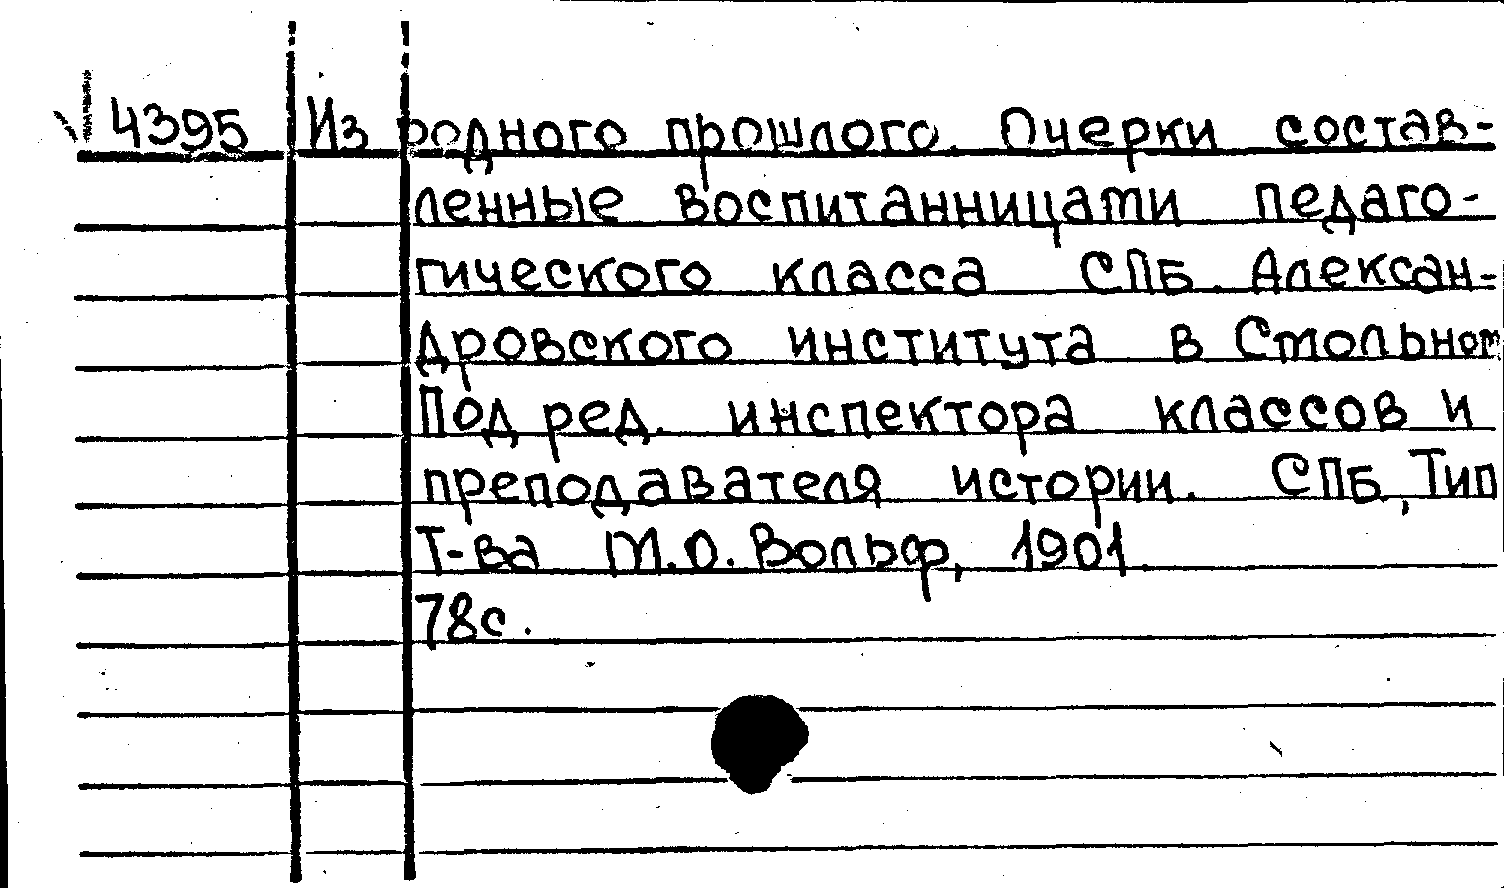 4395 Из родного прошлого. Очерки состав-
ленные воспитанницами педаго-
гического класса СПБ. Алексан-
дровского института в Стольном
Под ред. инспектора классов и
преподавателя истории. СПБ, Тип
Т-ва М.О. Вольф, 1901.
78с.